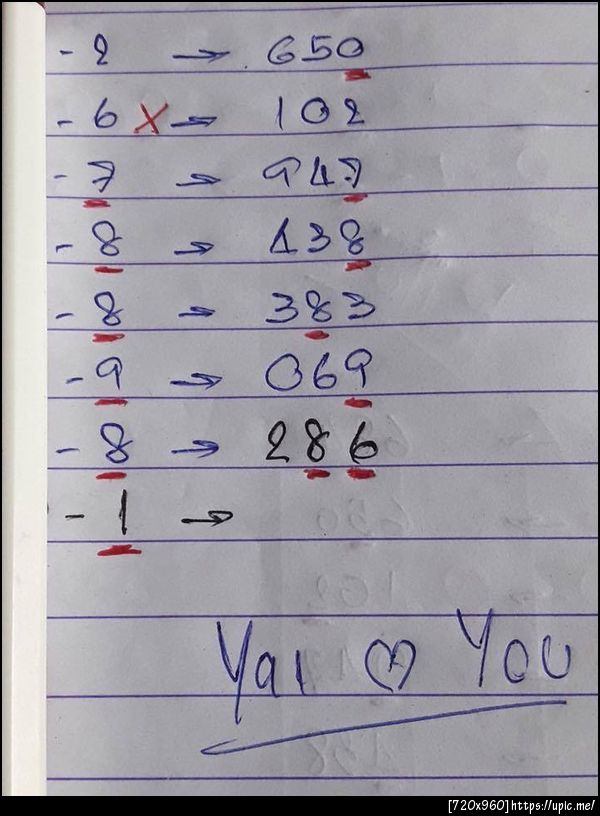 - 2 → 650
- 6 X → 102
- 7 → 947
- 8 → 138
- 8 → 383
- 9 → 069
- 8 → 286
- 1 →
Yai ♡ You
[720x960]https://upic.me/